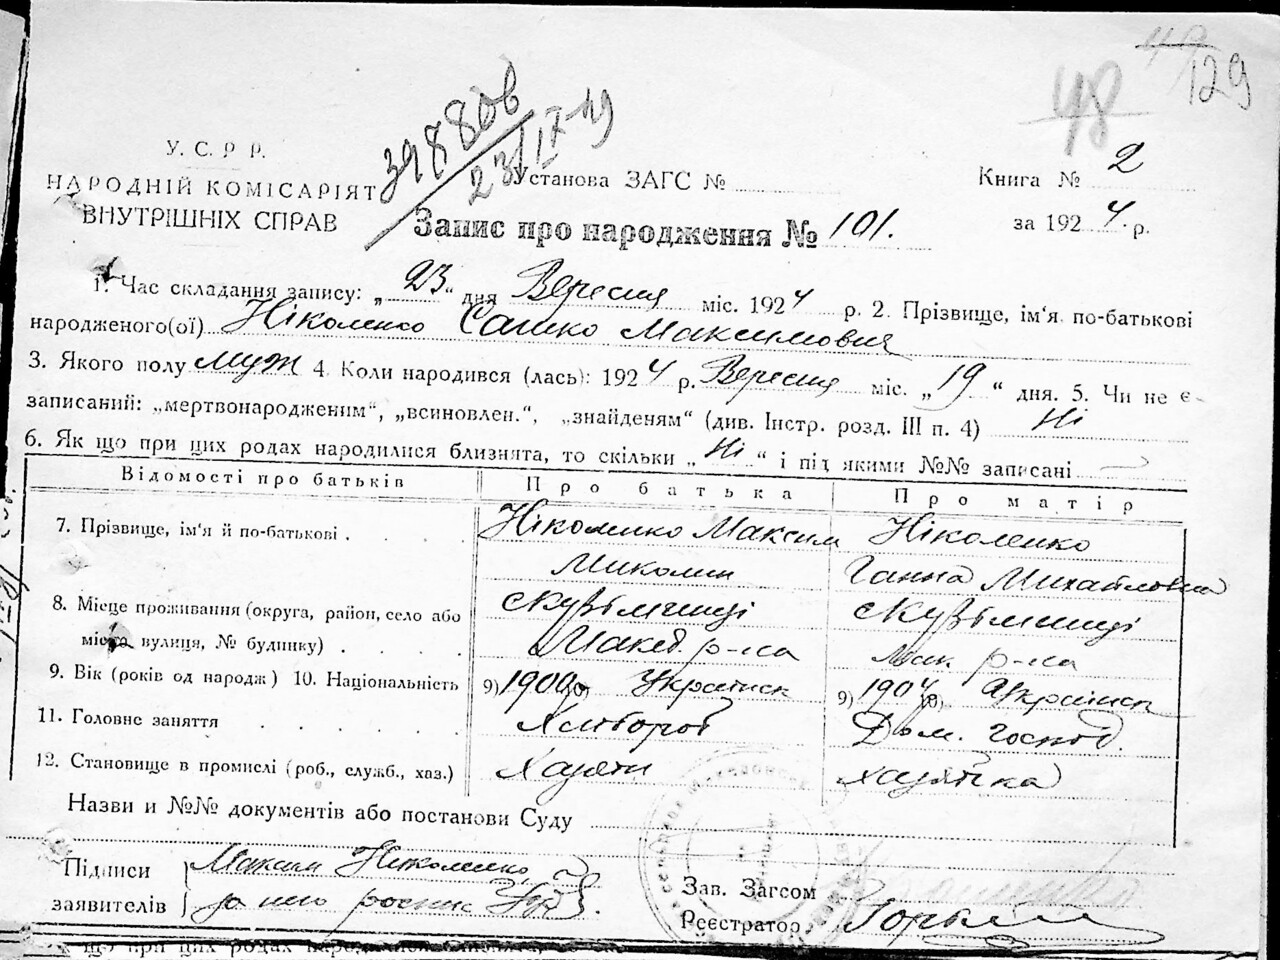 49
48 129
39880б
23/IX-19
У. С. Р Р.
НАРОДНІЙ КОМІСАРІЯТ
ВНУТРІШНІХ СПРАВ
Установа ЗАГС №
Книга № 2
за 1924 р.
Запис про народження № 101.
1. Час складання запису: „23“ дня Вересня міс. 1924 р. 2. Прізвище, ім'я по-батькові
народженого(ої) Ніколенко Сашко Максимович
3. Якого полу муж 4. Коли народився (лась): 1924 р. Вересня міс. „19“ дня. 5. Чи не є-
записаний: „мертвонародженим“, „всиновлен.“, „знайденям“ (див. Інстр. розд. III п. 4) Ні
6. Як що при цих родах народилися близнята, то скільки „Ні“ і під якими №№ записані
Відомості про батьків Про батька Про матір
7. Прізвище, ім'я й по-батькові . Ніколенко Максим Ніколенко
Миколин Ганна Михайловна
8. Місце проживання (округа, район, село або
місто вулиця, № будинку) . Макед. р-на Мак р-на
9. Вік (років од народж) 10. Національність 9) 1900 10) Українськ 9) 1904 10) Українськ
11. Головне заняття Хлібороб Дом. господ.
12. Становище в промислі (роб., служб., хаз.) Хазяїн хазяйка
Назви и №№ документів або постанови Суду
Підписи Максим Ніколенко,
заявителів за него роспис
Зав. Загсом
Реєстратор
що при цих родах народилися близнята,